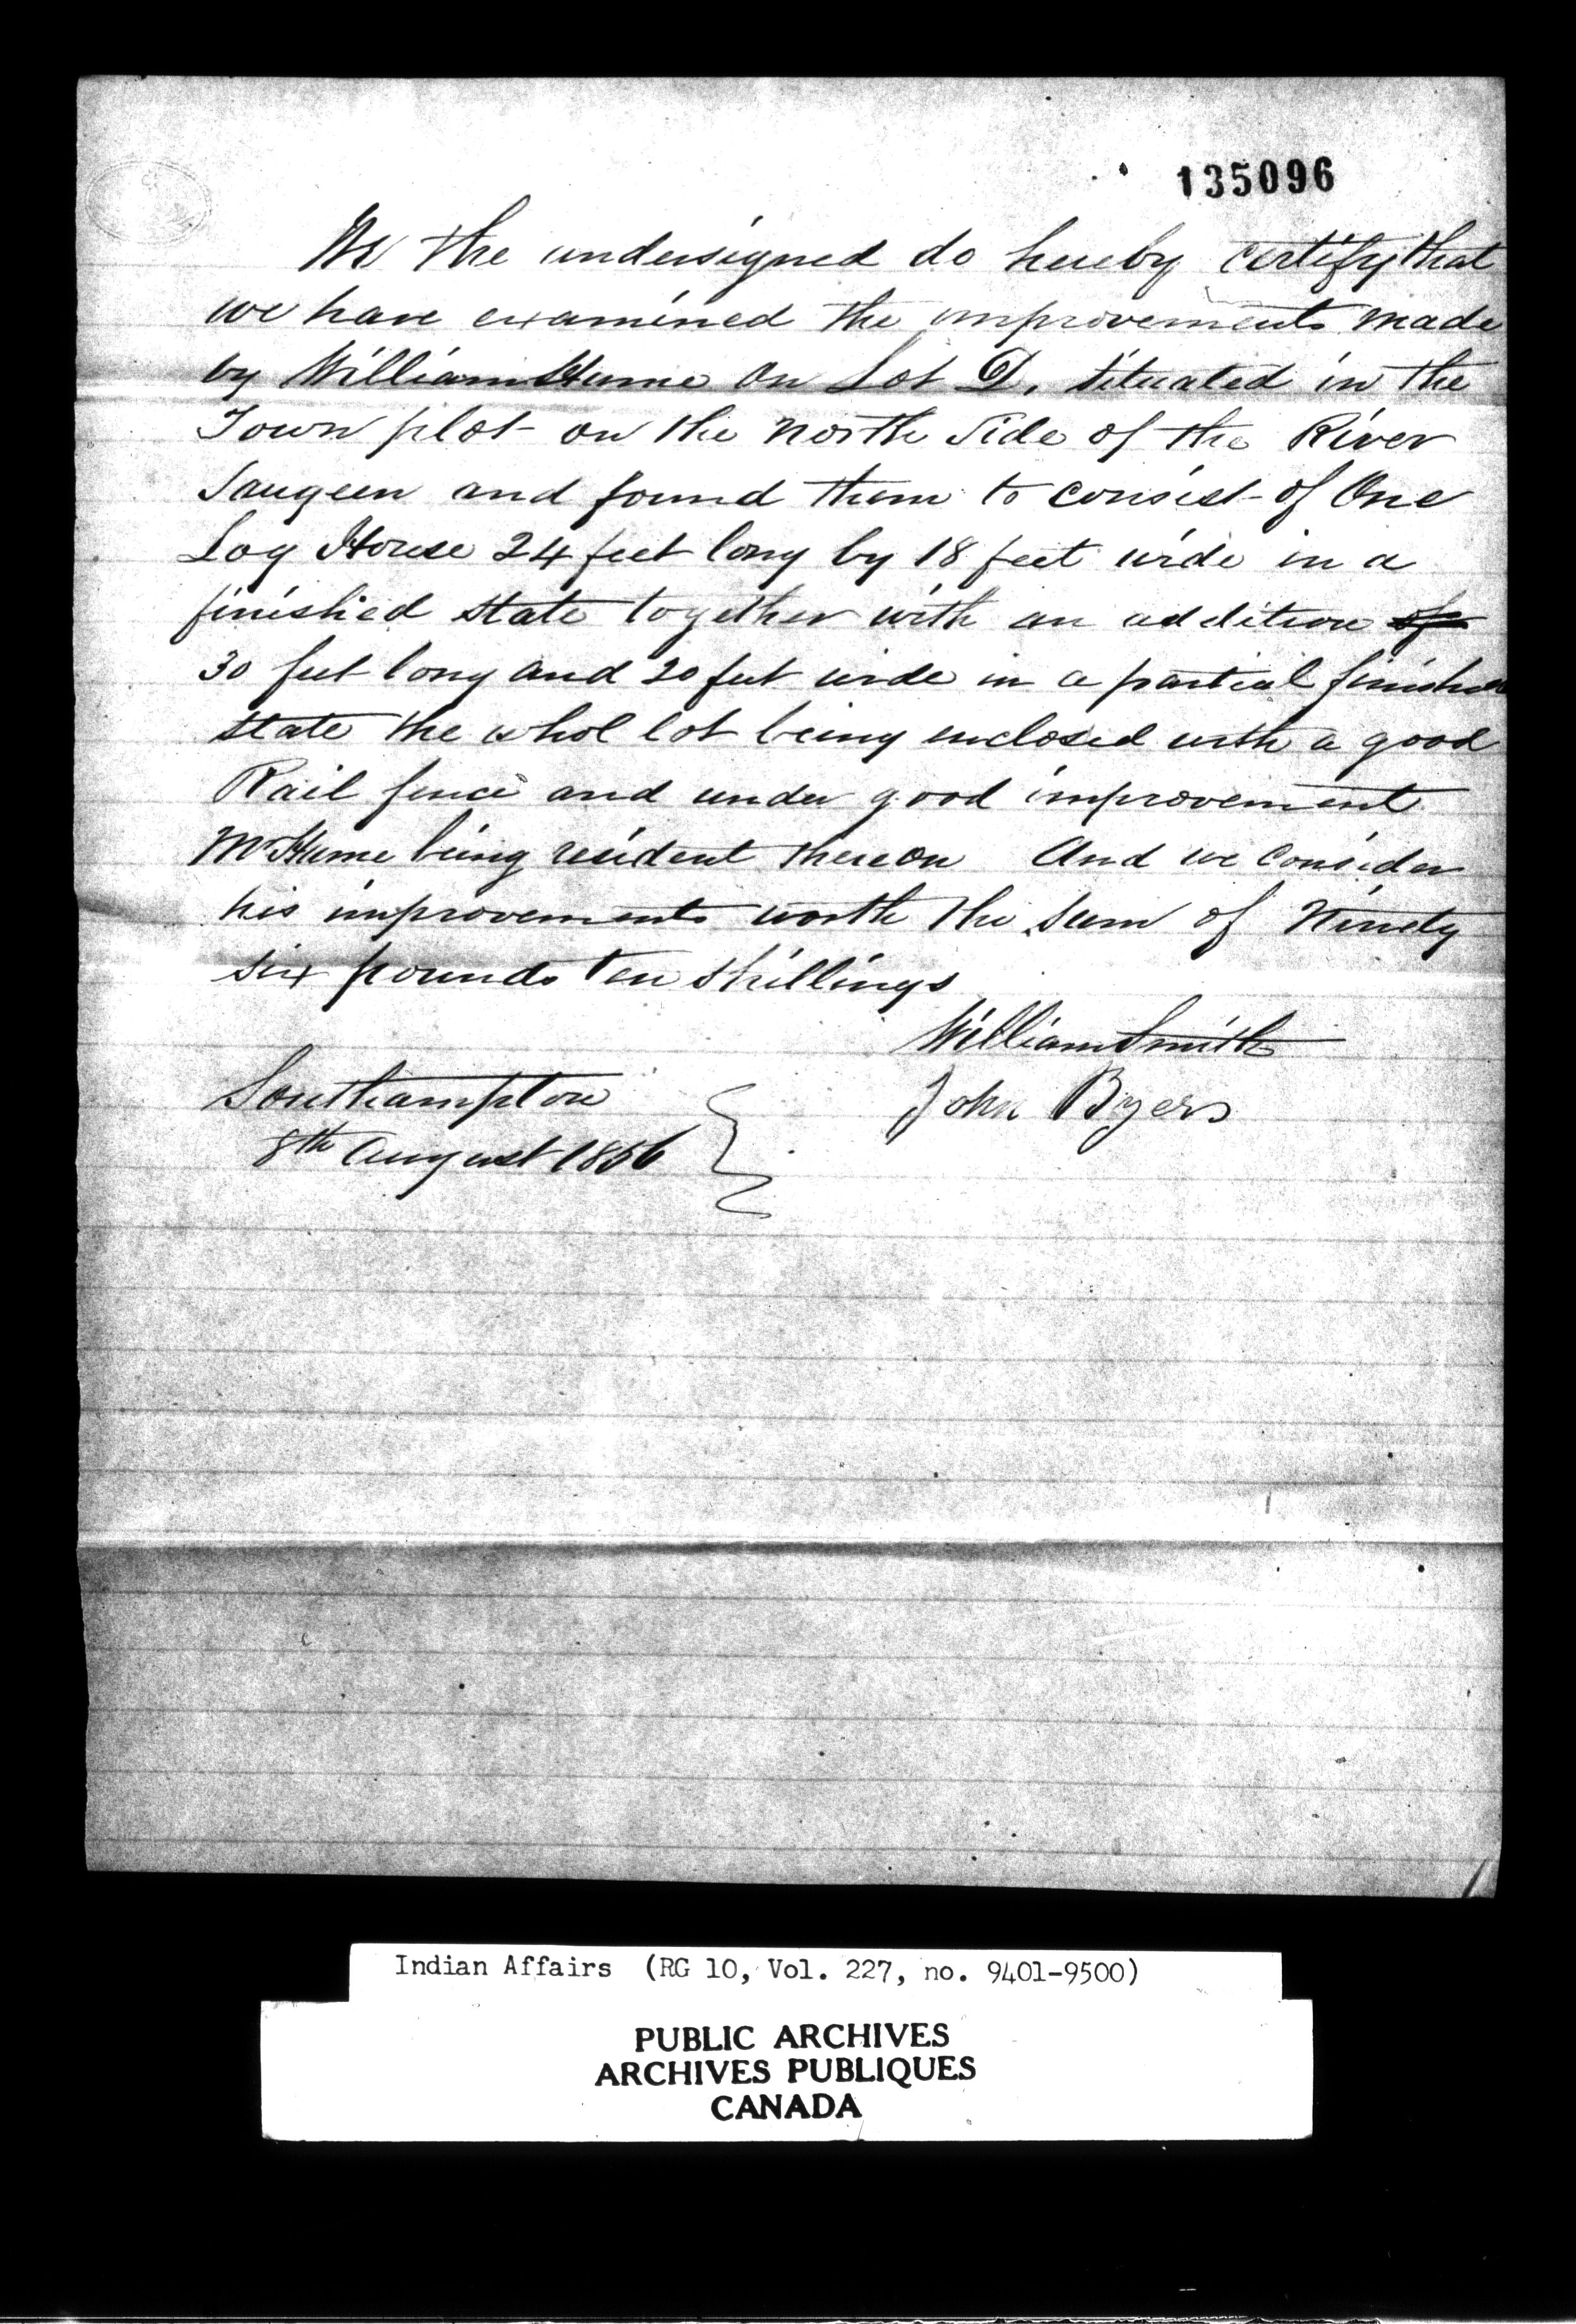 135096
We the undersigned do hereby certify that
we have examined the improvements made
by William Hume on Lot D, situated in the
Town plot on the North Side of the River
Saugeen and found them to consist of One
Log House 24 feet long by 18 feet wide in a
finished state together with an addition of
30 feet long and 20 feet wide in a partial finished
state the whol lot being enclosed with a good
Rail fence and under good improvement
Mr Hume being resident thereon And we consider
his improvements worth the sum of Ninety
six pounds ten shillings
William Smith
John Byers
Southampton
8th August 1856
Indian Affairs (RG 10, Vol. 227, no. 9401-9500)
PUBLIC ARCHIVES
ARCHIVES PUBLIQUES
CANADA